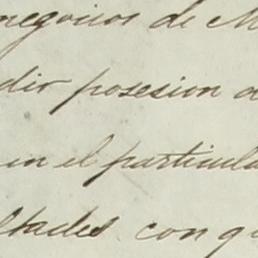 negocios de M
dio posesion d
en el particula
ltades con qu